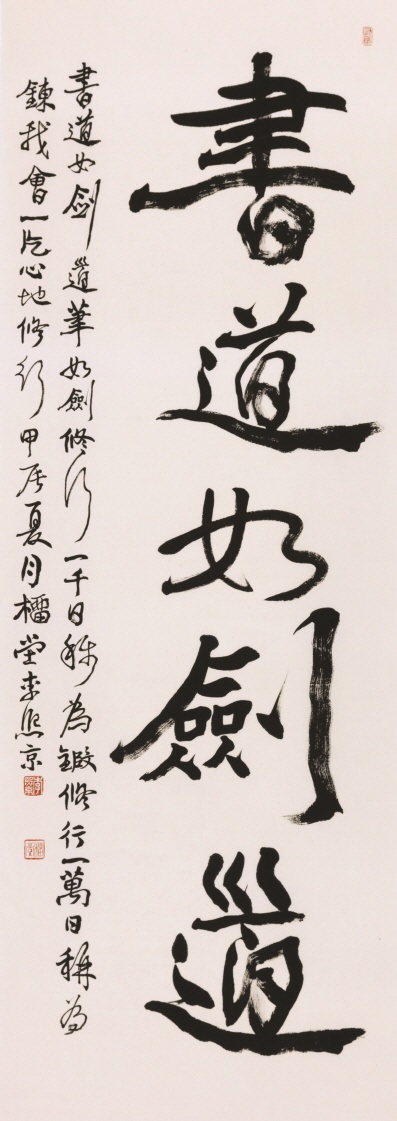 書道如劍道
書道如劍道筆如劍修行一千日稱為鍛修行一萬日稱為
鍊我會一片心地修行甲辰夏月橊堂李熙京